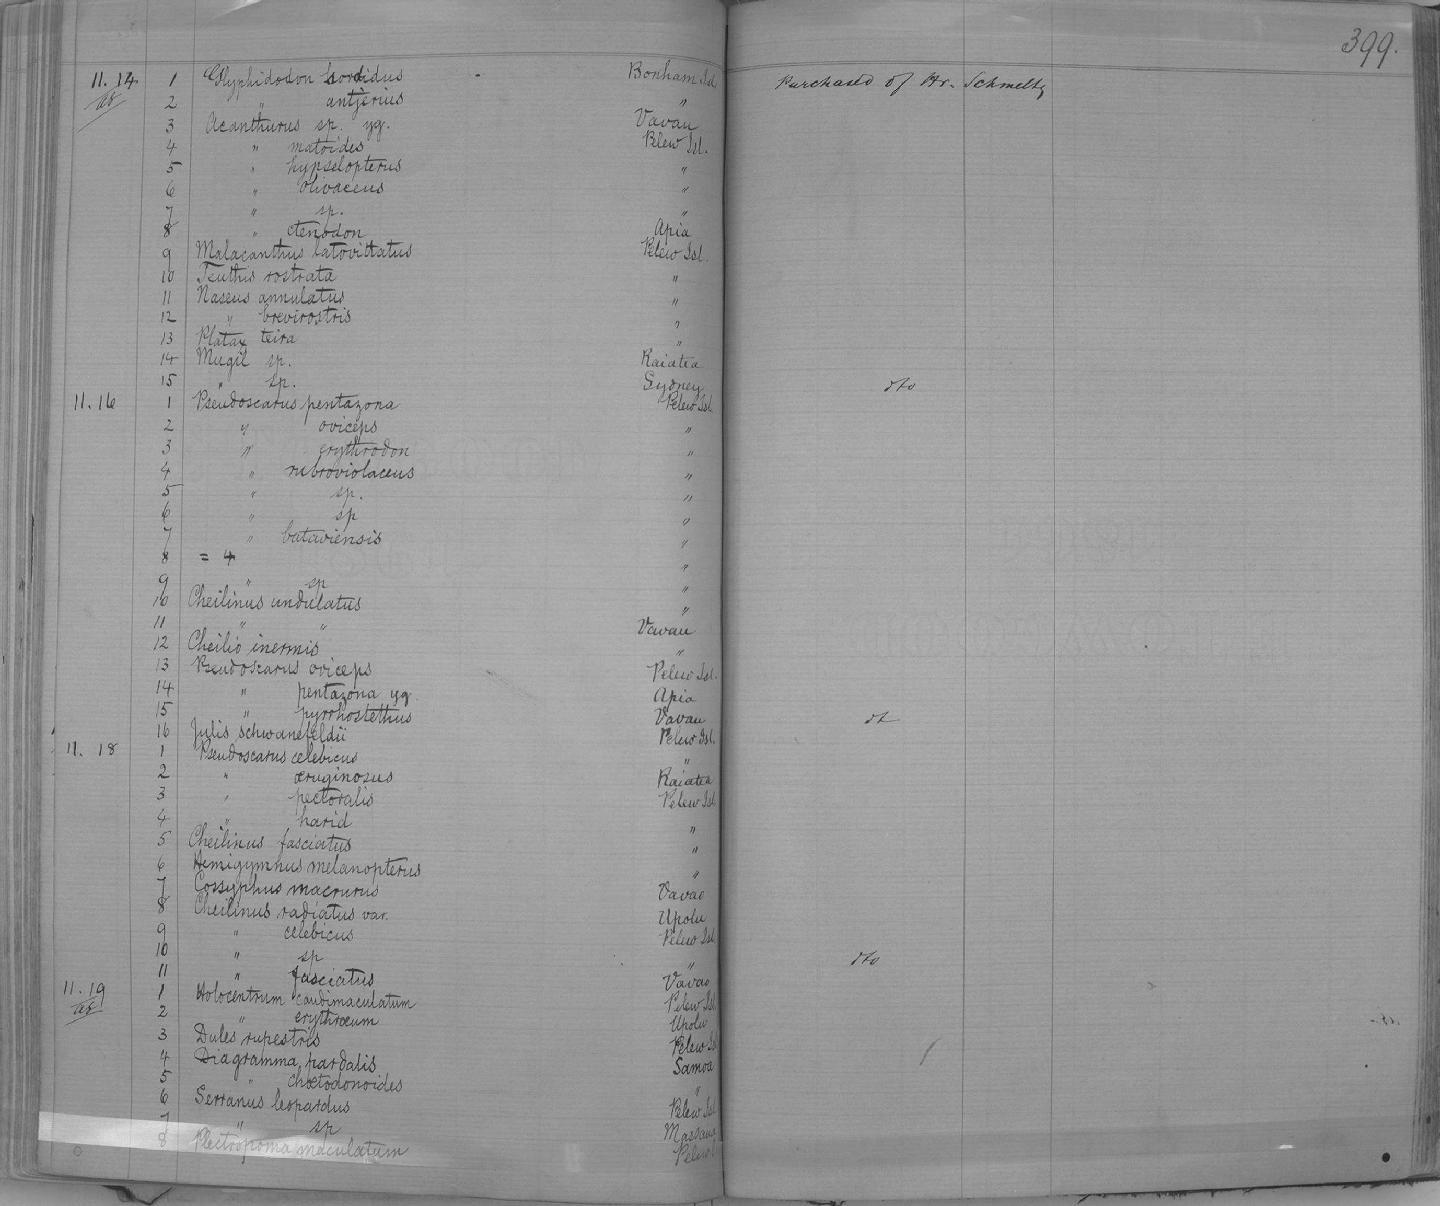 399.
11.14 1 Glyphidodon sordidus Bonham Isl. Purchased of Hr. Schmeltz
2 " antjerius "
3 Acanthurus sp. yg. Vavau
4 " matoides Pelew Isl.
5 " hypselopterus "
6 " olivaceus "
7 " sp. "
8 " ctenodon Apia
9 Malacanthus latovittatus Pelew Isl.
10 Teuthis rostrata "
11 Naseus annulatus "
12 " brevirostris "
13 Platax teira "
14 Mugil sp. Raiatea
15 " sp. Sydney dto
11.16 1 Pseudoscarus pentazona Pelew Isl.
2 " oviceps "
3 " erythrodon "
4 " rubroviolaceus "
5 " sp. "
6 " sp "
7 " bataviensis "
8 = 4 "
9 " sp "
10 Cheilinus undulatus "
11 " " Vavau
12 Cheilio inermis "
13 Pseudoscarus oviceps Pelew Isl.
14 " pentazona yg. Apia
15 " pyrrhostethus Vavau dt
16 Julis schwanefeldii Pelew Isl.
11.18 1 Pseudoscarus celebicus "
2 " æruginosus Raiatea
3 " pectoralis Pelew Isl
4 " harid "
5 Cheilinus fasciatus "
6 Hemigymnus melanopterus "
7 Cossyphus macrurus Vavao
8 Cheilinus radiatus var. Upolu
9 " celebicus Pelew Isl.
10 " sp " dto
11 " fasciatus Vavao
11.19 1 Holocentrum caudimaculatum Pelew Isl
2 " erythræum Upolu
3 Dules rupestris Pelew Isl
4 Diagramma pardalis Samoa
5 " chætodonoides "
6 Serranus leopardus Pelew Isl
7 " sp Massaua
8 Plectropoma maculatum Pelew